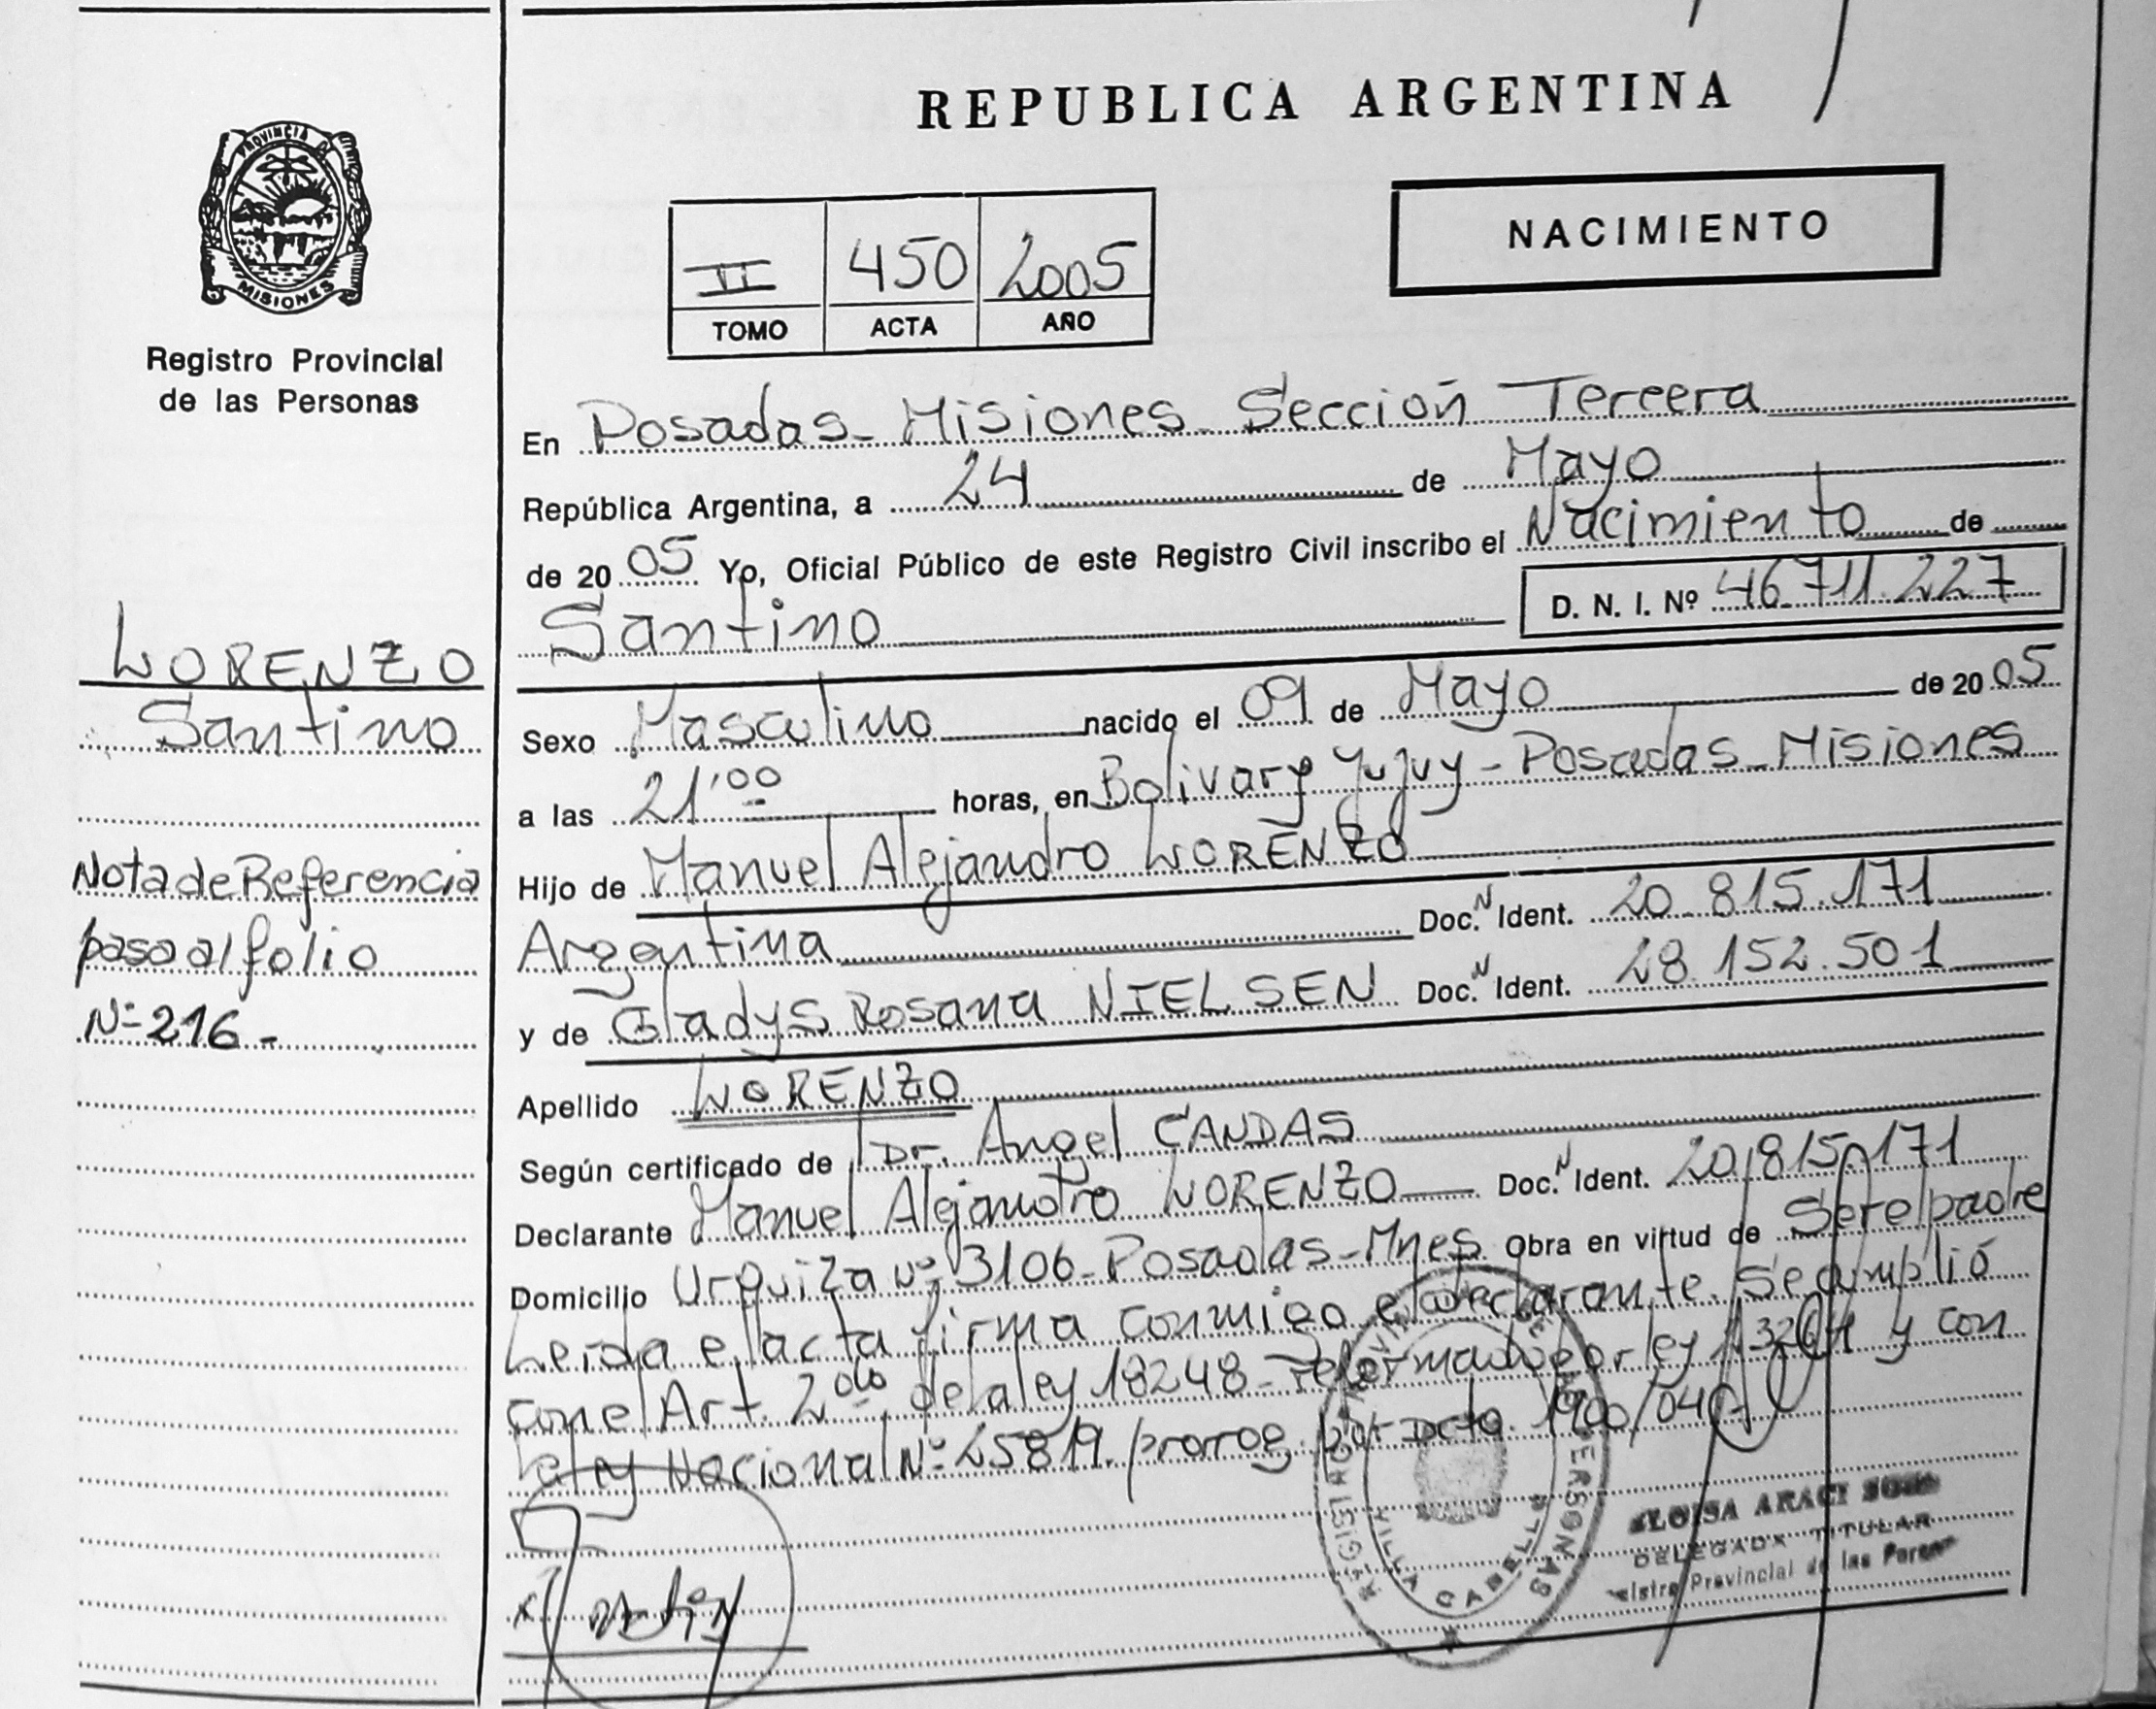 REPUBLICA ARGENTINA
PROVINCIA DE
MISIONES
Registro Provincial
de las Personas
NACIMIENTO
II 450 2005
TOMO ACTA AÑO
En Posadas - Misiones - Sección Tercera
República Argentina, a 24 de Mayo
de 20 05 Yo, Oficial Público de este Registro Civil inscribo el Nacimiento de
Santino D. N. I. Nº 46.711.227
LORENZO
Santino
Sexo Masculino nacido el 09 de Mayo de 20 05
a las 21'00 horas, en Bolivar y Jujuy - Posadas - Misiones
Nota de Referencia
pasa al folio
Nº 216 -
Hijo de Manuel Alejandro LORENZO
Argentina Doc. N Ident. 20.815.171
y de Gladys Rosana NIELSEN Doc. N Ident. 28.152.501
Apellido LORENZO
Según certificado de Dr. Angel CANDAS
Declarante Manuel Alejandro LORENZO Doc. N Ident. 20.815.171
Domicilio Urquiza Nº 3106 - Posadas - Mnes. Obra en virtud de Ser el padre
Leida el acta firma conmigo el declarante. Se cumplió
con el Art. 2do de la ley 18248 - reformado por ley y con
la ley Nacional Nº 25819. prorrog. por Dcto. 1900/04
VILLA CABELLO
ARACI
DELEGADA TITULAR
Provincial de las